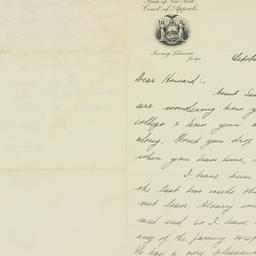 State of New York
Court of Appeals
Irving Lehman
Judge
Dear Howard:-
are wondering how yo
college & how your
along. Don't you drop
when you have time,
I have been
the last two weeks
not leave Albany
end so I have
any of the family except
He had a very pleasant